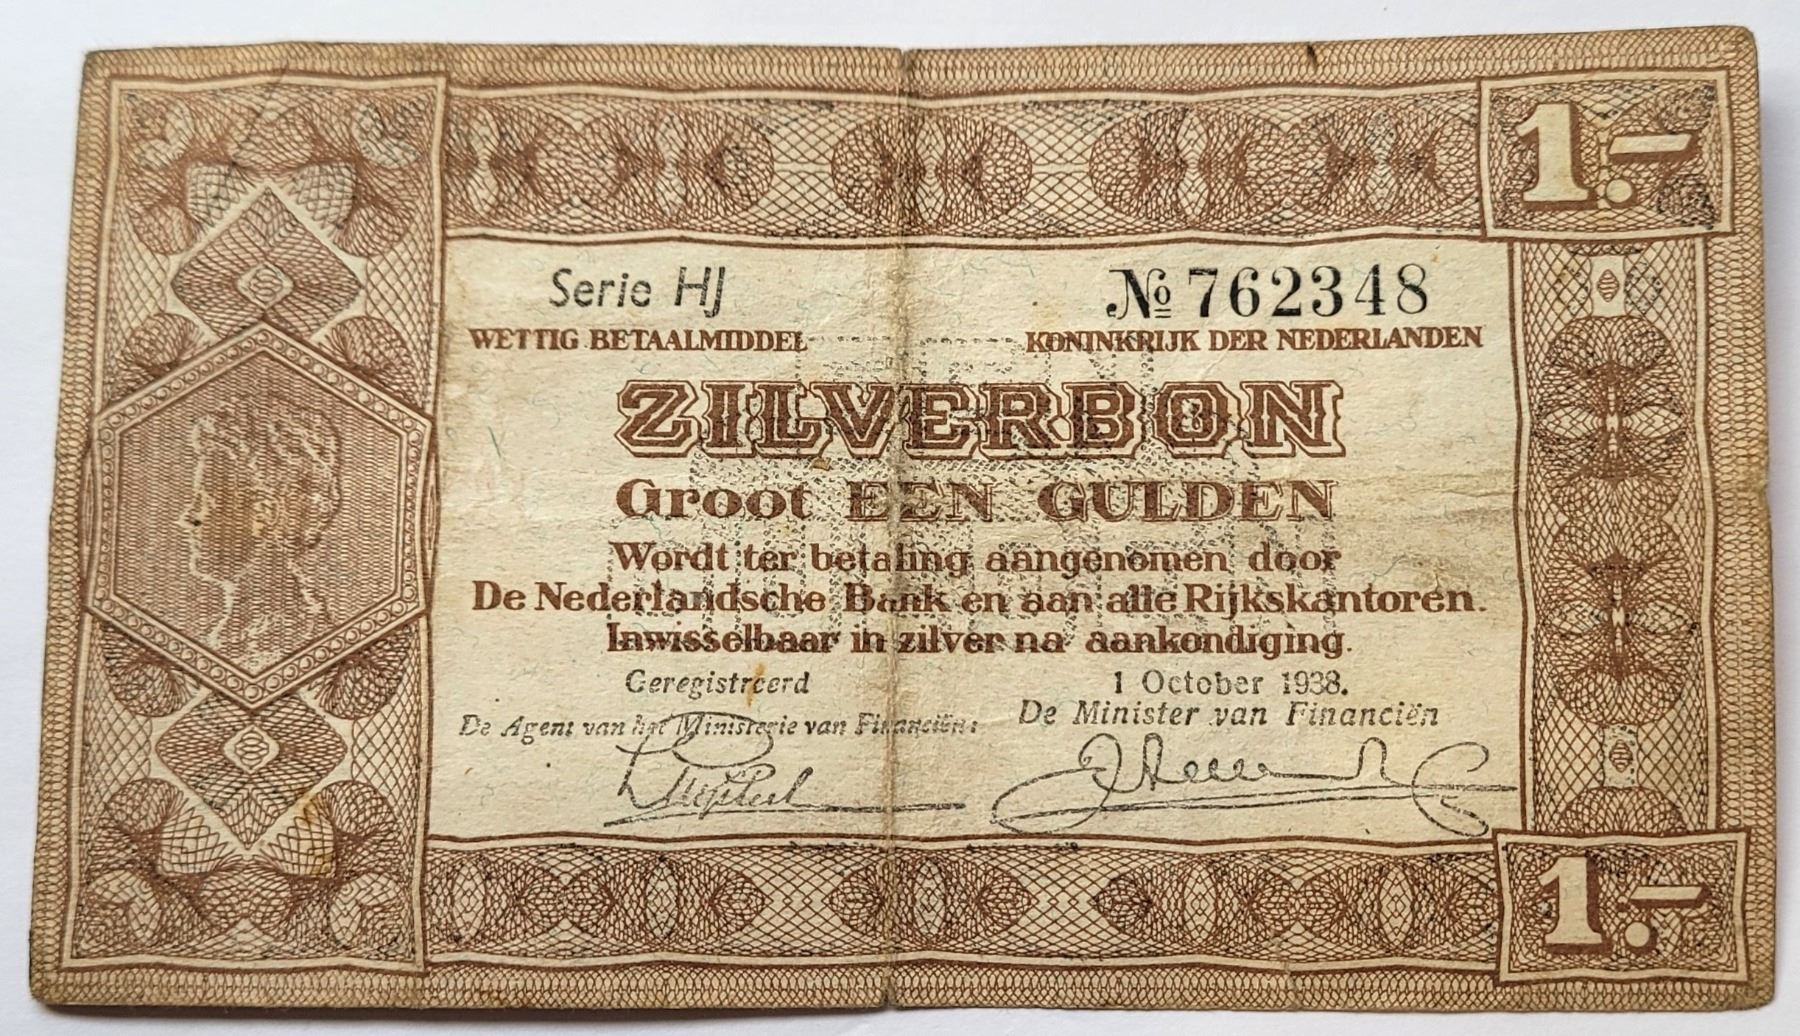 1.-
Serie HJ № 762348
WETTIG BETAALMIDDEL KONINKRIJK DER NEDERLANDEN
ZILVERBON
Groot EEN GULDEN
Wordt ter betaling aangenomen door
De Nederlandsche Bank en aan alle Rijkskantoren.
Inwisselbaar in zilver na aankondiging.
Geregistreerd 1 October 1938.
De Agent van het Ministerie van Financiën: De Minister van Financiën
1.-